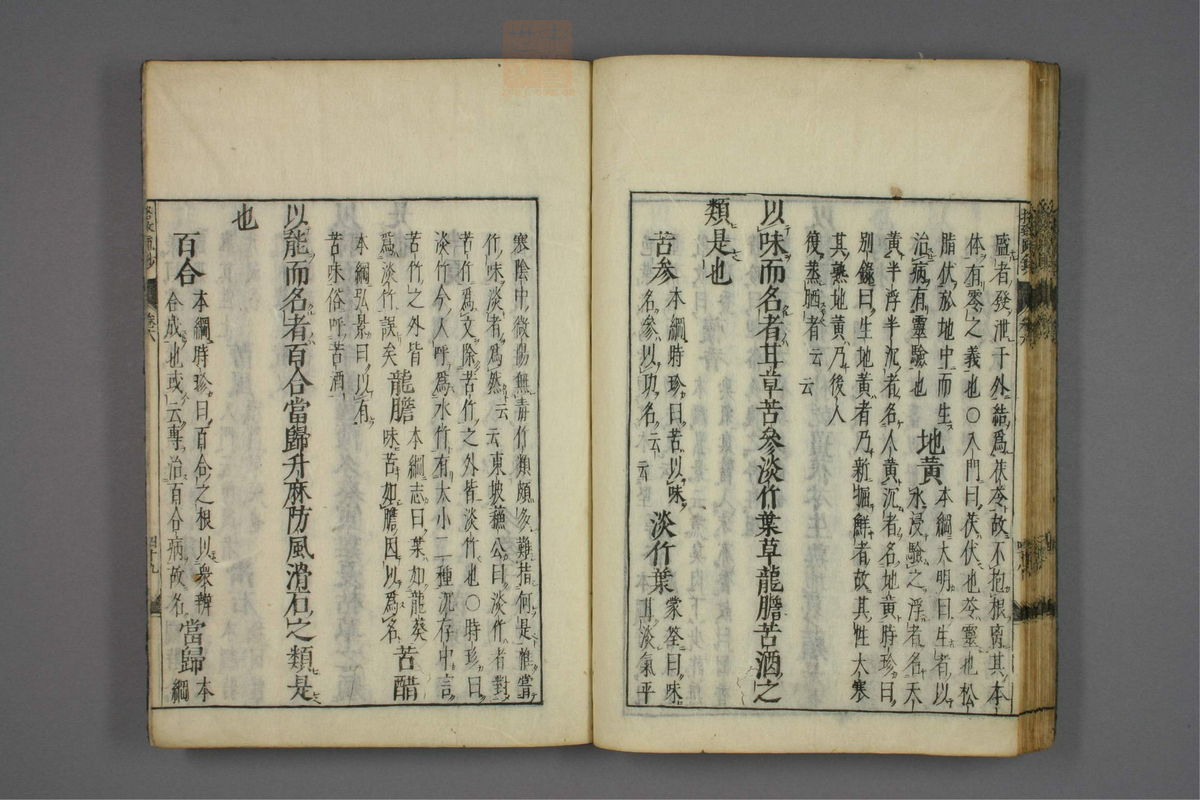 盛者發泄于外結爲茯苓故不抱根离其本
体有零之義也○入門曰茯伏也苓靈也松
脂伏於地中而生
治病有靈驗也
地黄
本綱大明曰生者以
水浸驗之浮者名天
黄半浮半沉者名人黄沉者名地黄時珍曰
別錄曰生地黄者乃新掘鮮者故其性大寒
其熟地黄乃後人
復蒸晒者云云
以味而名者甘草苦參淡竹葉草龍膽苦酒之
類是也
苦参
本綱時珍曰苦以味
名參以功名云云
淡竹葉
蒙筌曰味
淡氣平
寒陰中微陽無毒竹類頗多難指何是惟嘗
竹味淡者爲然云云東坡藕公曰淡竹者對
苦竹爲文除苦竹之外皆淡竹也○時珍曰
淡竹今人呼爲水竹有大小二種沉存中言
苦竹之外皆
爲淡竹誤矣
龍膽
本綱志曰葉如龍葵
味苦如膽因以爲名
苦醋
本綱弘景曰以有
苦味俗呼苦酒
以能而名者百合當歸升麻防風滑石之類是
也
百合
本綱時珍曰百合之根以衆瓣
合成也或云專治百合病故名
當歸
本
綱
四十九